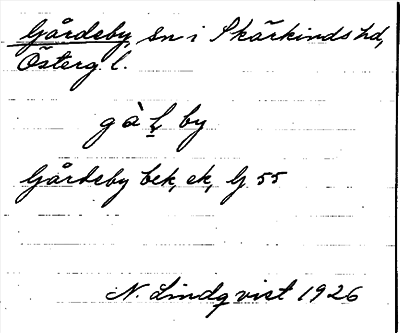 Gårdeby, sn i Skärkinds hd,
Österg. l.
gàḷby
Gårdeby bek, ek, G 55
N. Lindqvist 1926